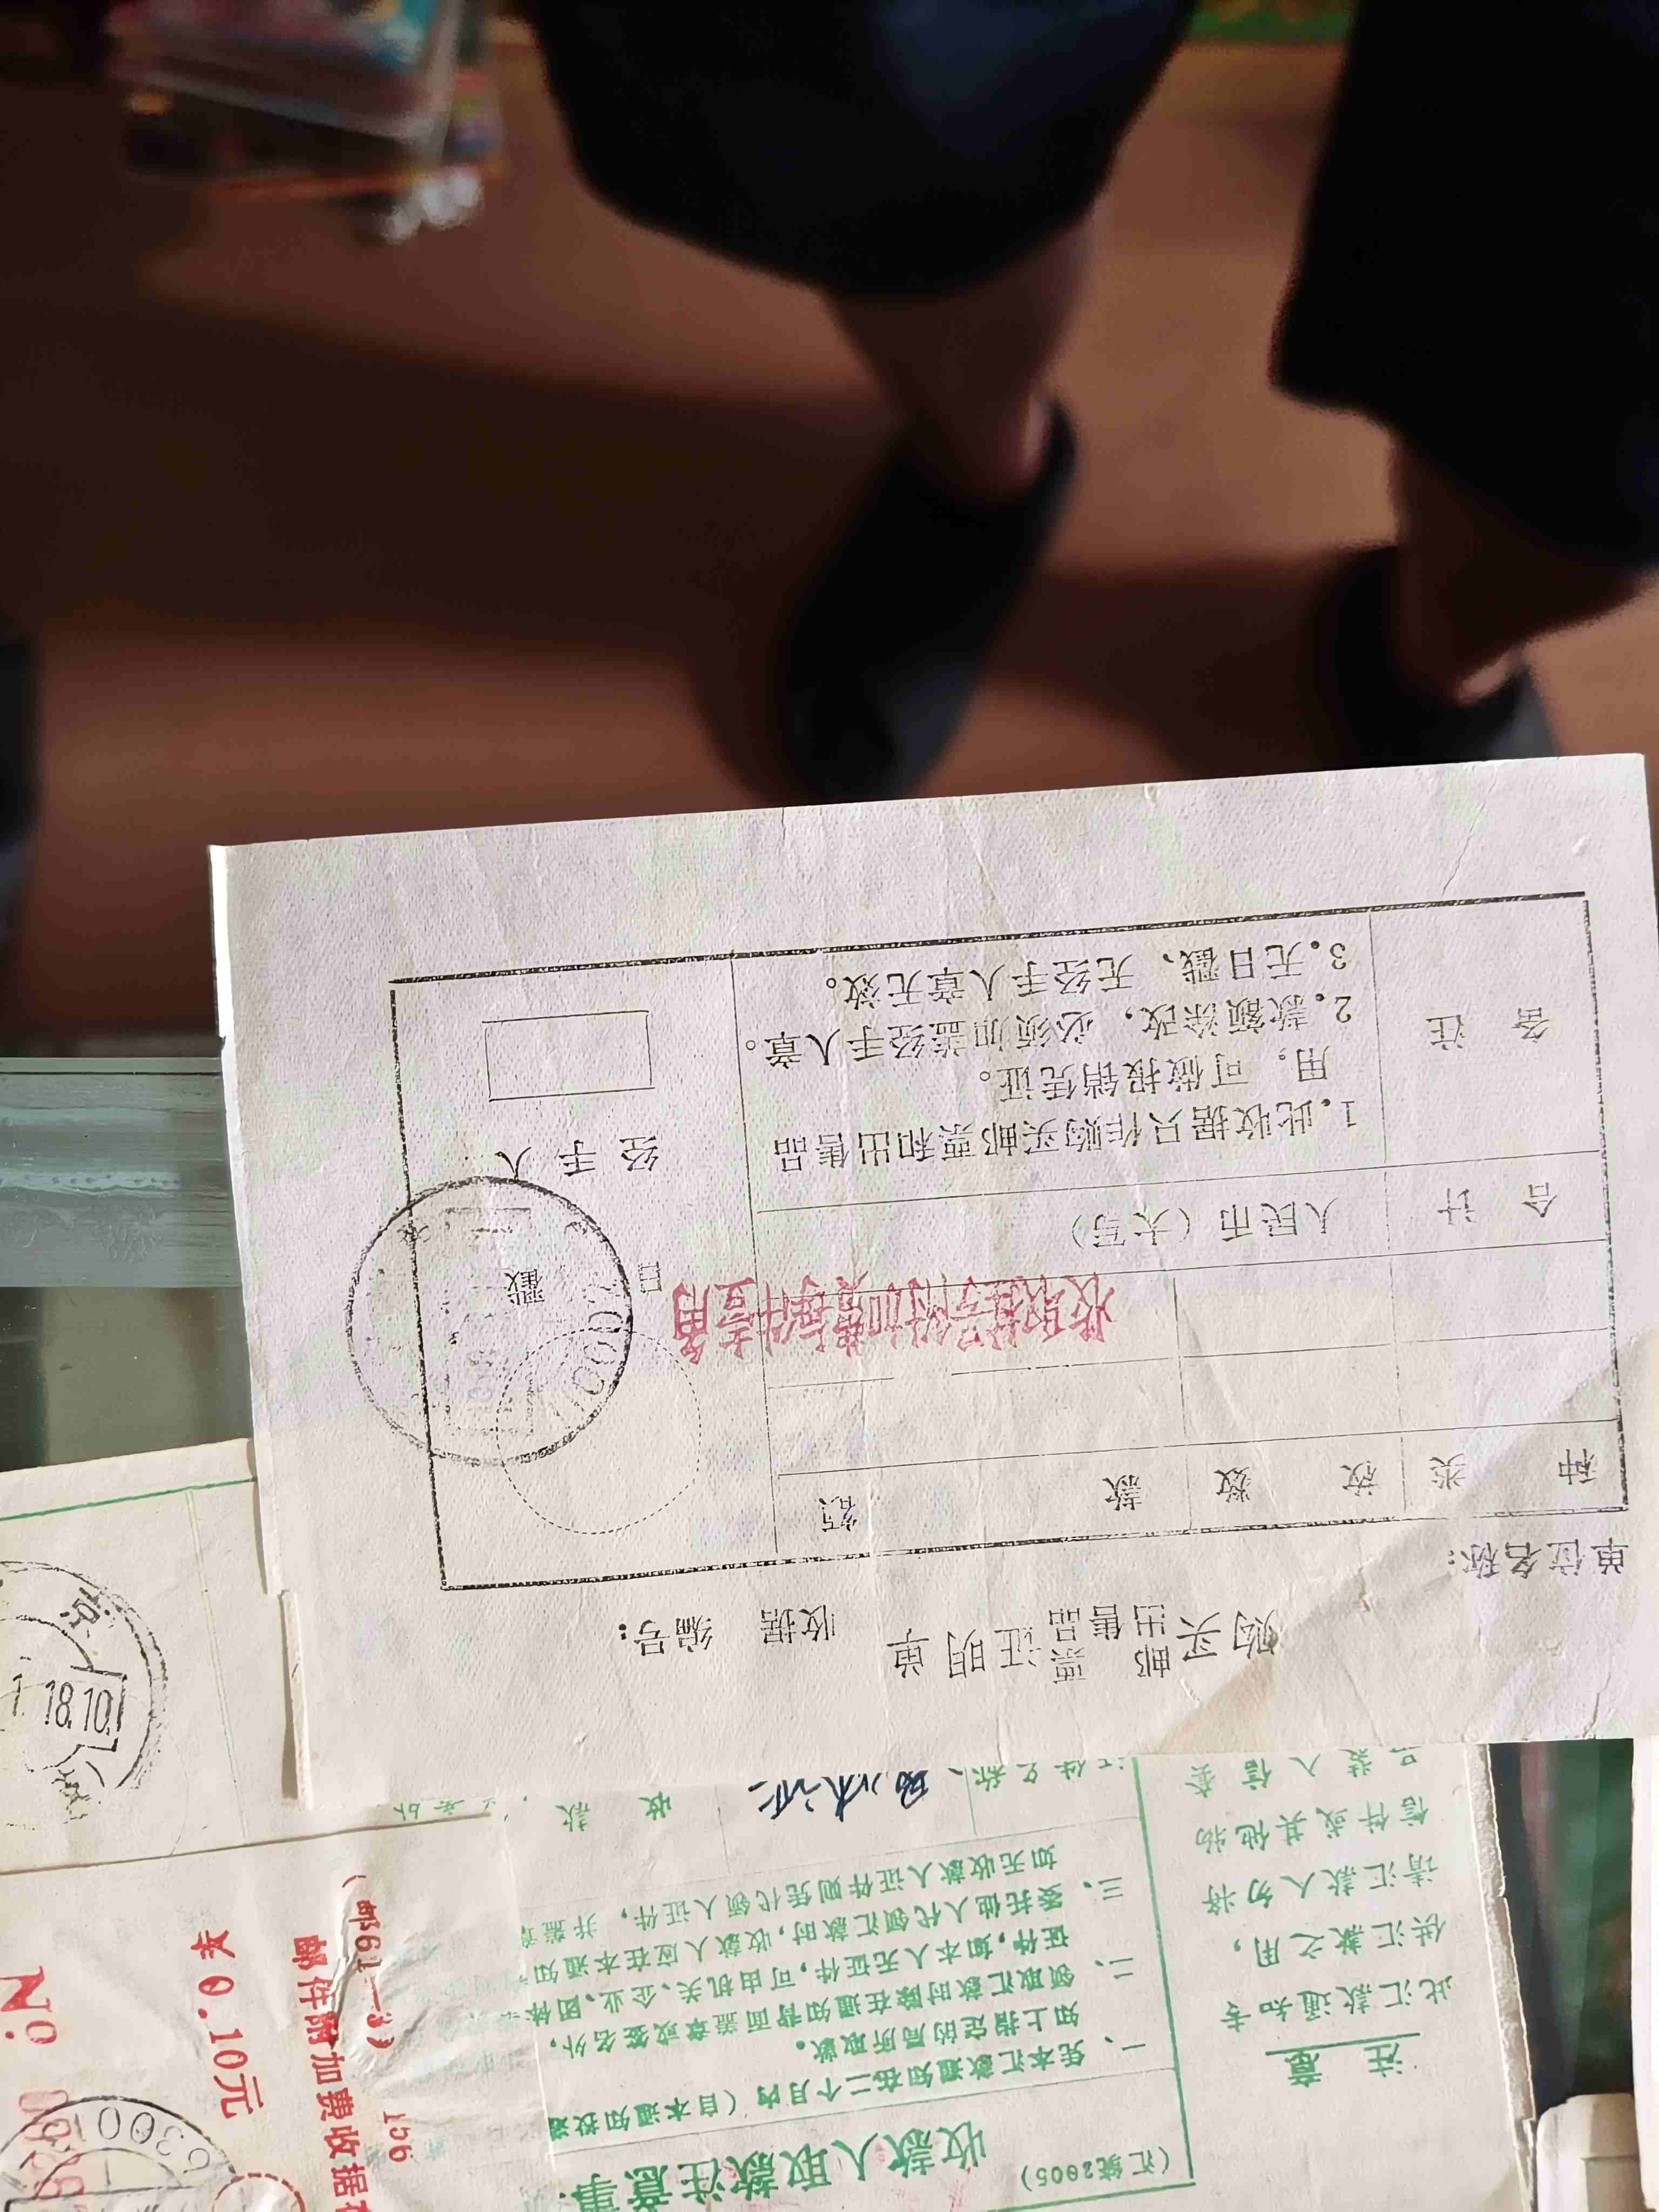 购买邮票证明单 收据 编号：
出售品
单位名称：
种类 枚数 款额
收取挂号附加费标准备用
合计 人民币（大写）
备注
1.此收据只作购买邮票和出售品
用。可做报销凭证。
2.款额涂改，必须加盖经手人章。
3.无日戳、无经手人章无效。
日戳
经手人
（汇统2005）
收款人取款注意事
一、凭本汇款通知在二个月内（自本通知投递
如上指定的局所取款。
二、领取汇款时除在通知背面盖章或签名外，
证件，如本人无证件，可由机关、企业、团体
三、委托他人代领汇款时，收款人应在本通知
如无收款人证件则凭代领人证件，并盖章
证件名称
收款
注意
此汇款通知专
供汇款之用，
请汇款人勿将
信件或其他物
装入信套
京
18.10.1
（邮61—3）
邮件附加费收据
¥0.10元
№
156
6300